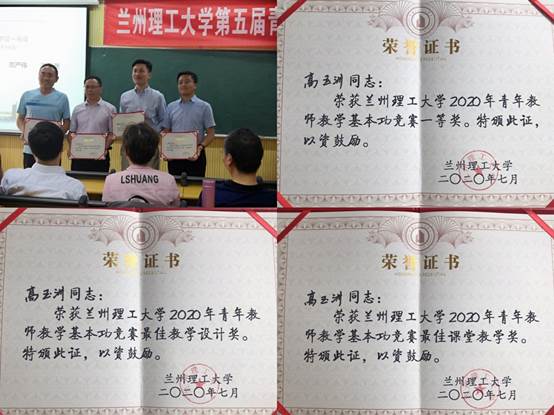 兰州理工大学第五届青
LSHUANG
荣誉证书
高玉洲同志：
荣获兰州理工大学2020年青年教
师教学基本功竞赛一等奖。特颁此证，
以资鼓励。
兰州理工大学
二〇二〇年七月
荣誉证书
高玉洲同志：
荣获兰州理工大学2020年青年教
师教学基本功竞赛最佳教学设计奖。
特颁此证，以资鼓励。
兰州理工大学
二〇二〇年七月
荣誉证书
高玉洲同志：
荣获兰州理工大学2020年青年教
师教学基本功竞赛最佳课堂教学奖。
特颁此证，以资鼓励。
兰州理工大学
二〇二〇年七月